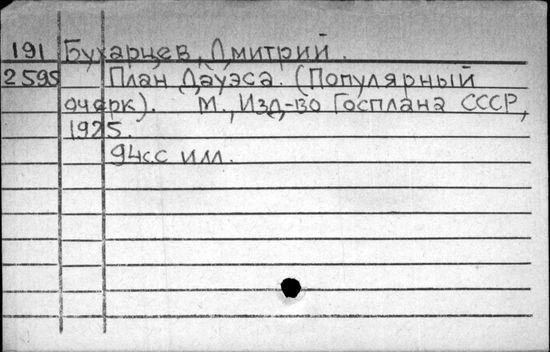 191 Бухарцев, Дмитрий.
2595 План Дауэса. (Популярный
очерк). М., Изд-во Госплана СССР,
1925.
94сс илл.